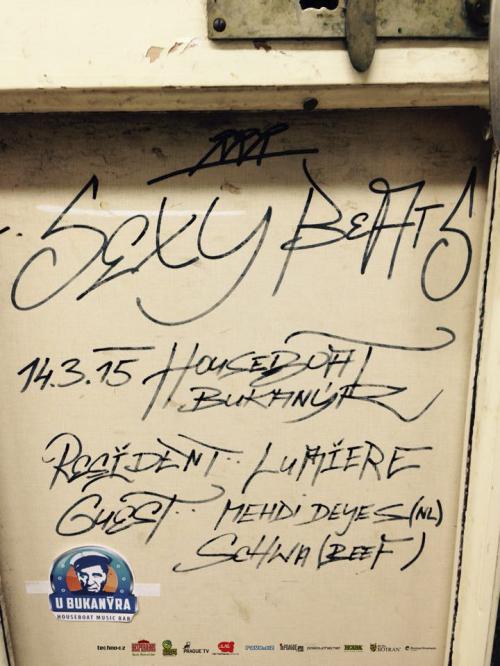 SEXY BEATS
14.3.15 HOUSEBOAT
BUKANÝR
RESIDENT LUMIERE
GUEST: MEHDI DEYES (NL)
SCHWA (BEEF)
U BUKANÝRA
HOUSEBOAT MUSIC BAR
techno.cz
PRAGUE TV